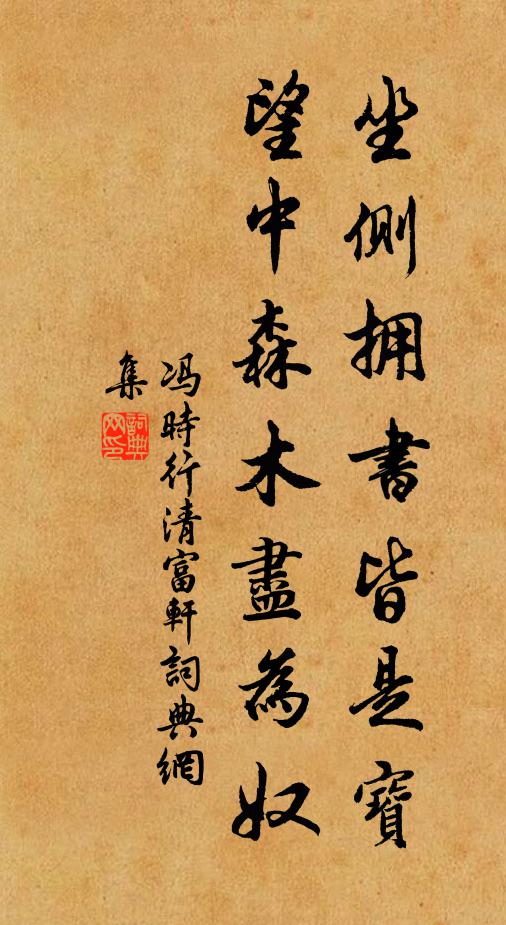 坐側拥書皆是寶
望中森木盡為奴
冯時行清富軒詞典網
集
詞典网印